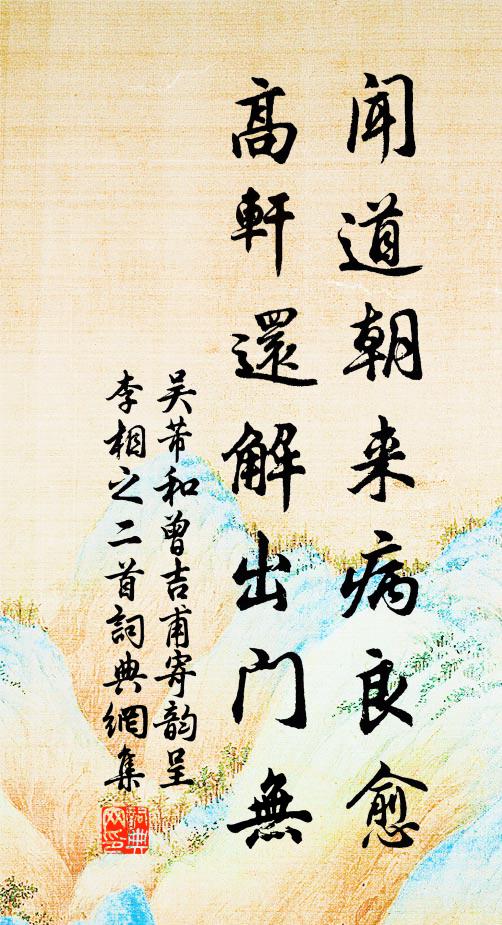 聞道朝来病良愈
高軒還解出门無
吴芾和曾吉甫寄韵呈
李相之二首詞典網集
詞典
网印